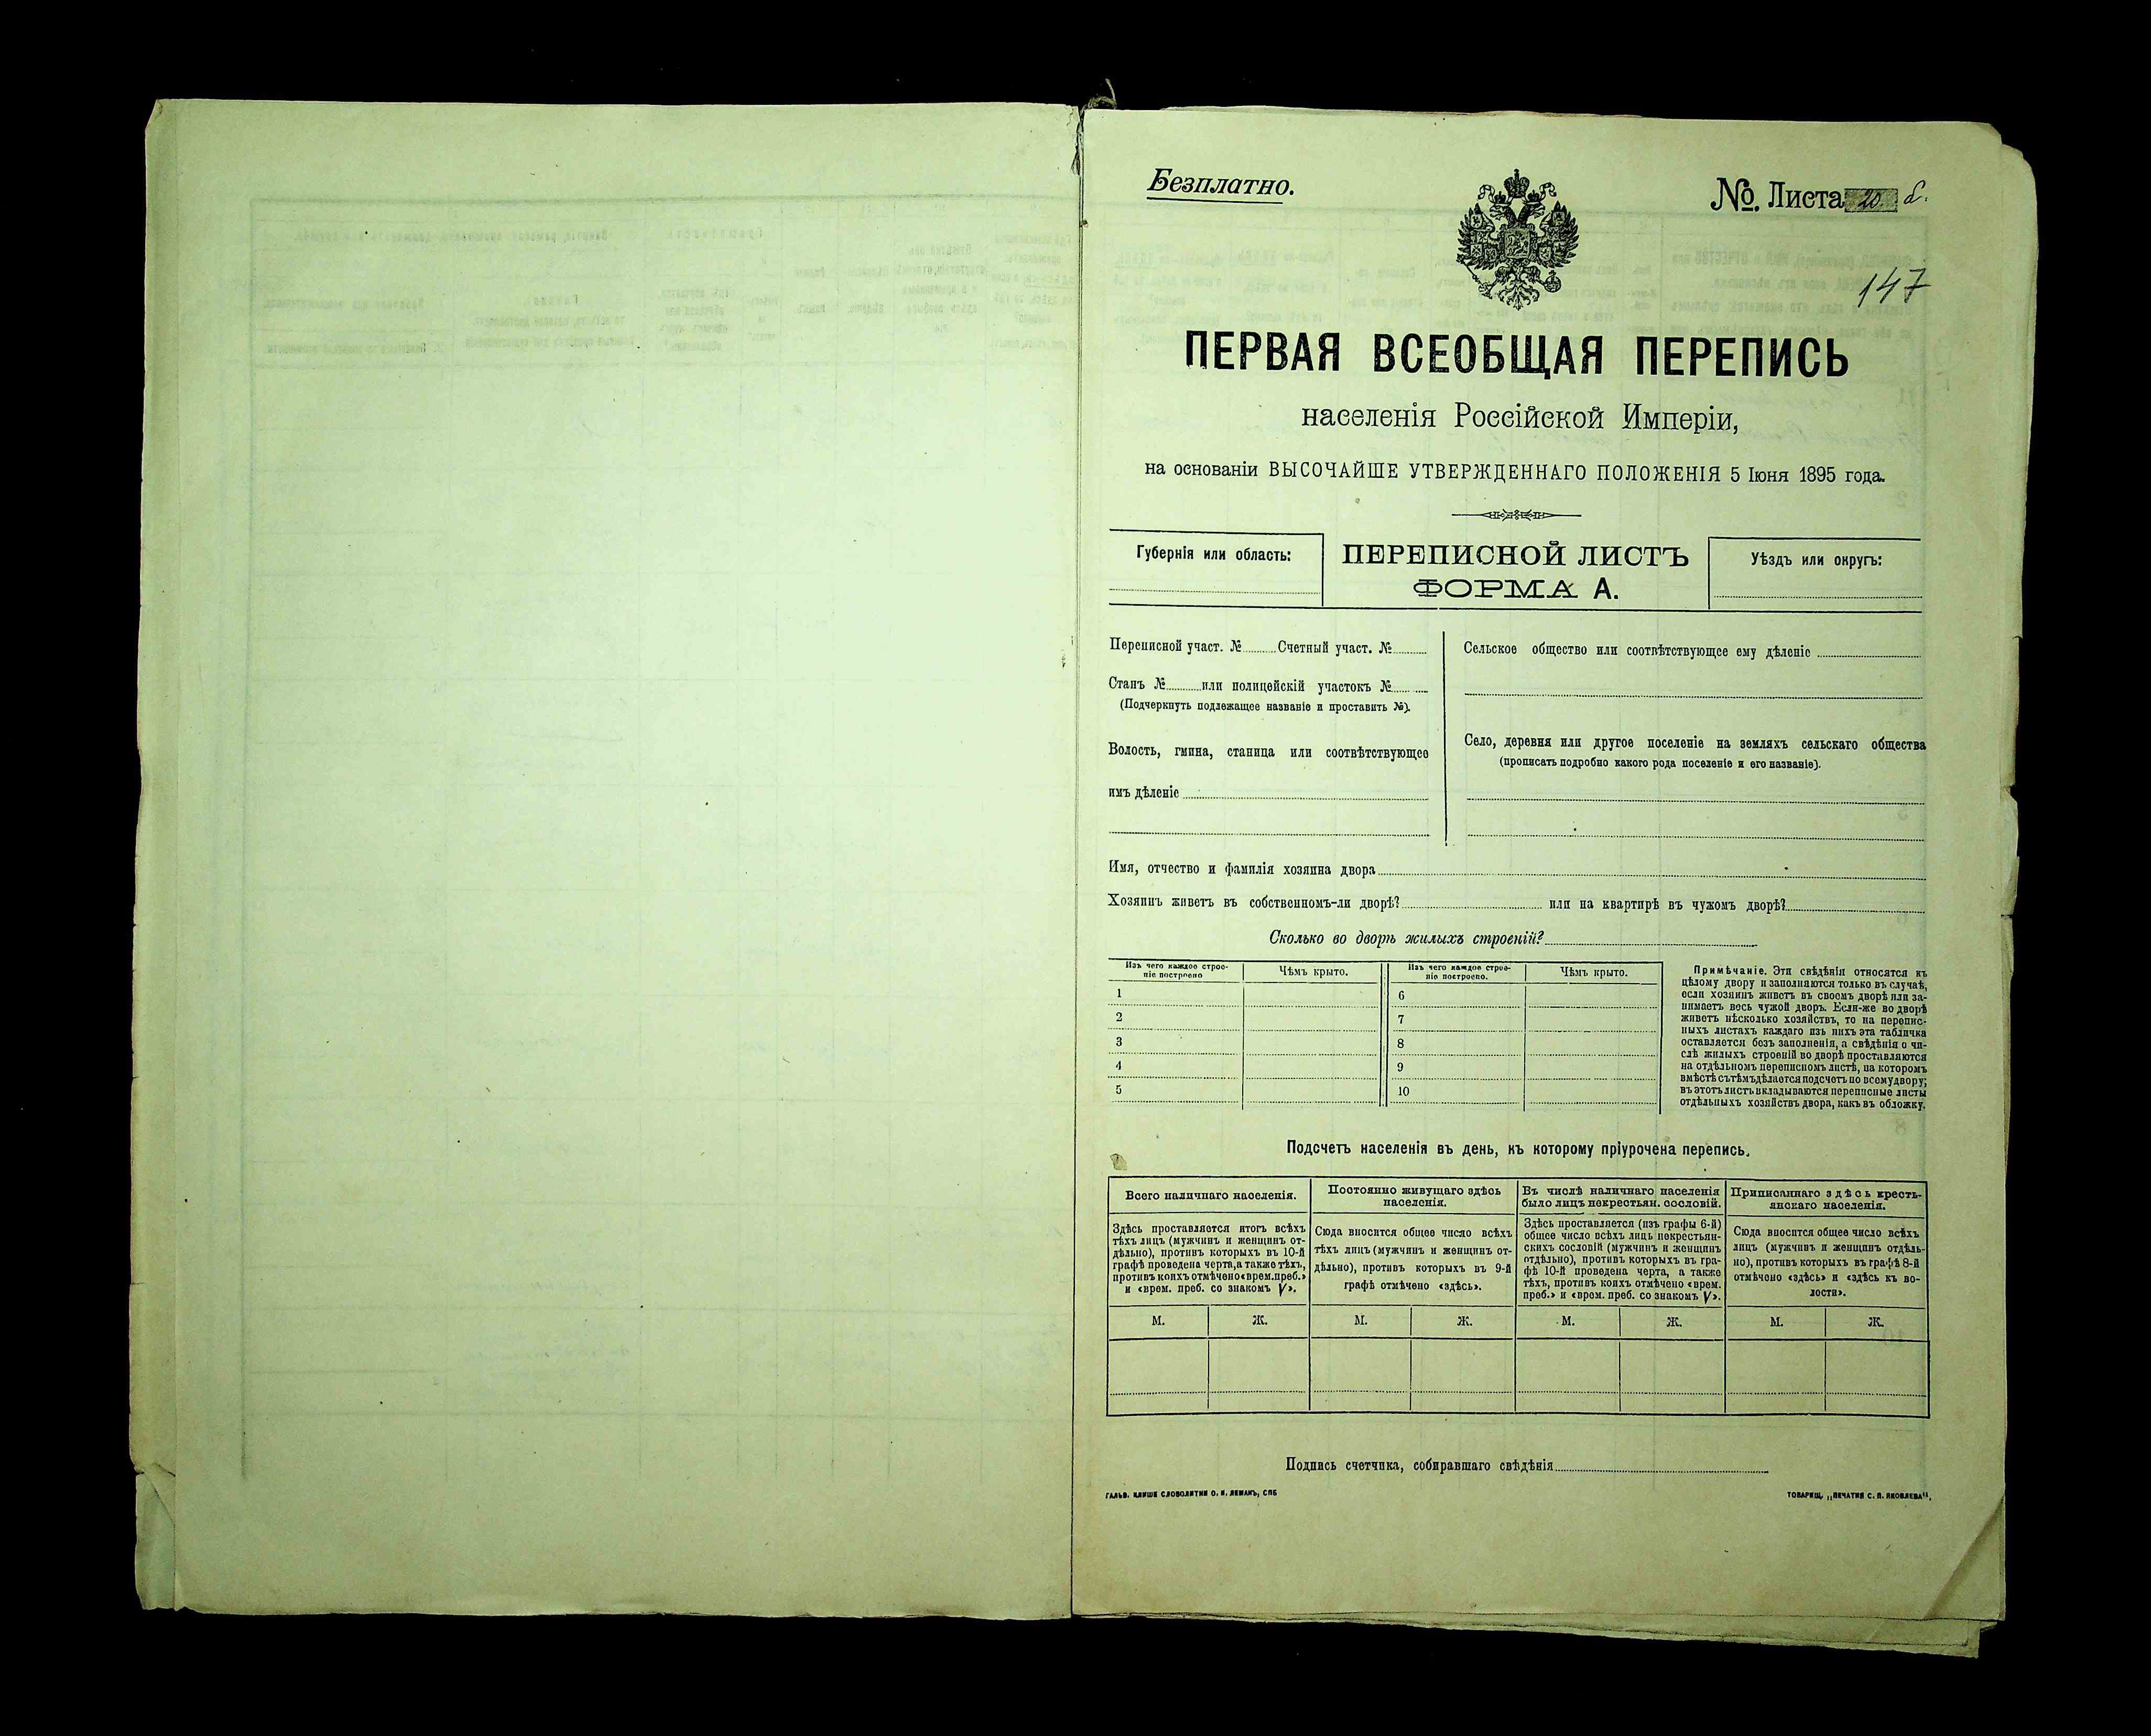 Безплатно.
№. Листа 20 б.
147
ПЕРВАЯ ВСЕОБЩАЯ ПЕРЕПИСЬ
населенія Россійской Имперіи,
на основаніи ВЫСОЧАЙШЕ УТВЕРЖДЕННАГО ПОЛОЖЕНІЯ 5 Іюня 1895 года.
Губернія или область:
ПЕРЕПИСНОЙ ЛИСТЪ
ФОРМА А.
Уѣздъ или округъ:
Переписной участ. № Счетный участ. №
Станъ № или полицейскій участокъ №
(Подчеркнуть подлежащее названіе и проставить №).
Волость, гмина, станица или соотвѣтствующее
имъ дѣленіе
Сельское общество или соотвѣтствующее ему дѣленіе
Село, деревня или другое поселеніе на земляхъ сельскаго общества
(прописать подробно какого рода поселеніе и его названіе).
Имя, отчество и фамилія хозяина двора
Хозяинъ живетъ въ собственномъ-ли дворѣ? или на квартирѣ въ чужомъ дворѣ?
Сколько во дворѣ жилыхъ строеній?
Изъ чего каждое строе-
ніе построено
Чѣмъ крыто.
Изъ чего каждое строе-
ніе построено.
Чѣмъ крыто.
1
2
3
4
5
6
7
8
9
10
Примѣчаніе. Эти свѣдѣнія относятся къ
цѣлому двору и заполняются только въ случаѣ,
если хозяинъ живетъ въ своемъ дворѣ или за-
нимаетъ весь чужой дворъ. Если-же во дворѣ
живетъ нѣсколько хозяйствъ, то на перепис-
ныхъ листахъ каждаго изъ нихъ эта табличка
оставляется безъ заполненія, а свѣдѣнія о чи-
слѣ жилыхъ строеній во дворѣ проставляются
на отдѣльномъ переписномъ листѣ, на которомъ
вмѣстѣ съ тѣмъ дѣлается подсчетъ по всему двору;
въ этотъ листъ вкладываются переписные листы
отдѣльныхъ хозяйствъ двора, какъ въ обложку.
Подсчетъ населенія въ день, къ которому пріурочена перепись.
Всего наличнаго населенія.
Здѣсь проставляется итогъ всѣхъ
тѣхъ лицъ (мужчинъ и женщинъ от-
дѣльно), противъ которыхъ въ 10-й
графѣ проведена черта, а также тѣхъ,
противъ коихъ отмѣчено «врем. преб.»
и «врем. преб. со знакомъ V».
Постоянно живущаго здѣсь
населенія.
Сюда вносится общее число всѣхъ
тѣхъ лицъ (мужчинъ и женщинъ от-
дѣльно), противъ которыхъ въ 9-й
графѣ отмѣчено «здѣсь».
Въ числѣ наличнаго населенія
было лицъ некрестьян. сословій.
Здѣсь проставляется (изъ графы 6-й)
общее число всѣхъ лицъ некрестьян-
скихъ сословій (мужчинъ и женщинъ
отдѣльно), противъ которыхъ въ гра-
фѣ 10-й проведена черта, а также
тѣхъ, противъ коихъ отмѣчено «врем.
преб.» и «врем. преб. со знакомъ V».
Приписаннаго здѣсь кресть-
янскаго населенія.
Сюда вносится общее число всѣхъ
лицъ (мужчинъ и женщинъ отдѣль-
но), противъ которыхъ въ графѣ 8-й
отмѣчено «здѣсь» и «здѣсь къ во-
лости».
М. Ж. М. Ж. М. Ж. М. Ж.
Подпись счетчика, собиравшаго свѣдѣнія
ГАЛЬВ. КЛИШЕ СЛОВОЛИТНИ О. И. ЛЕМАНЪ, СПБ
ТОВАРИЩ. „ПЕЧАТНЯ С. П. ЯКОВЛЕВА“,